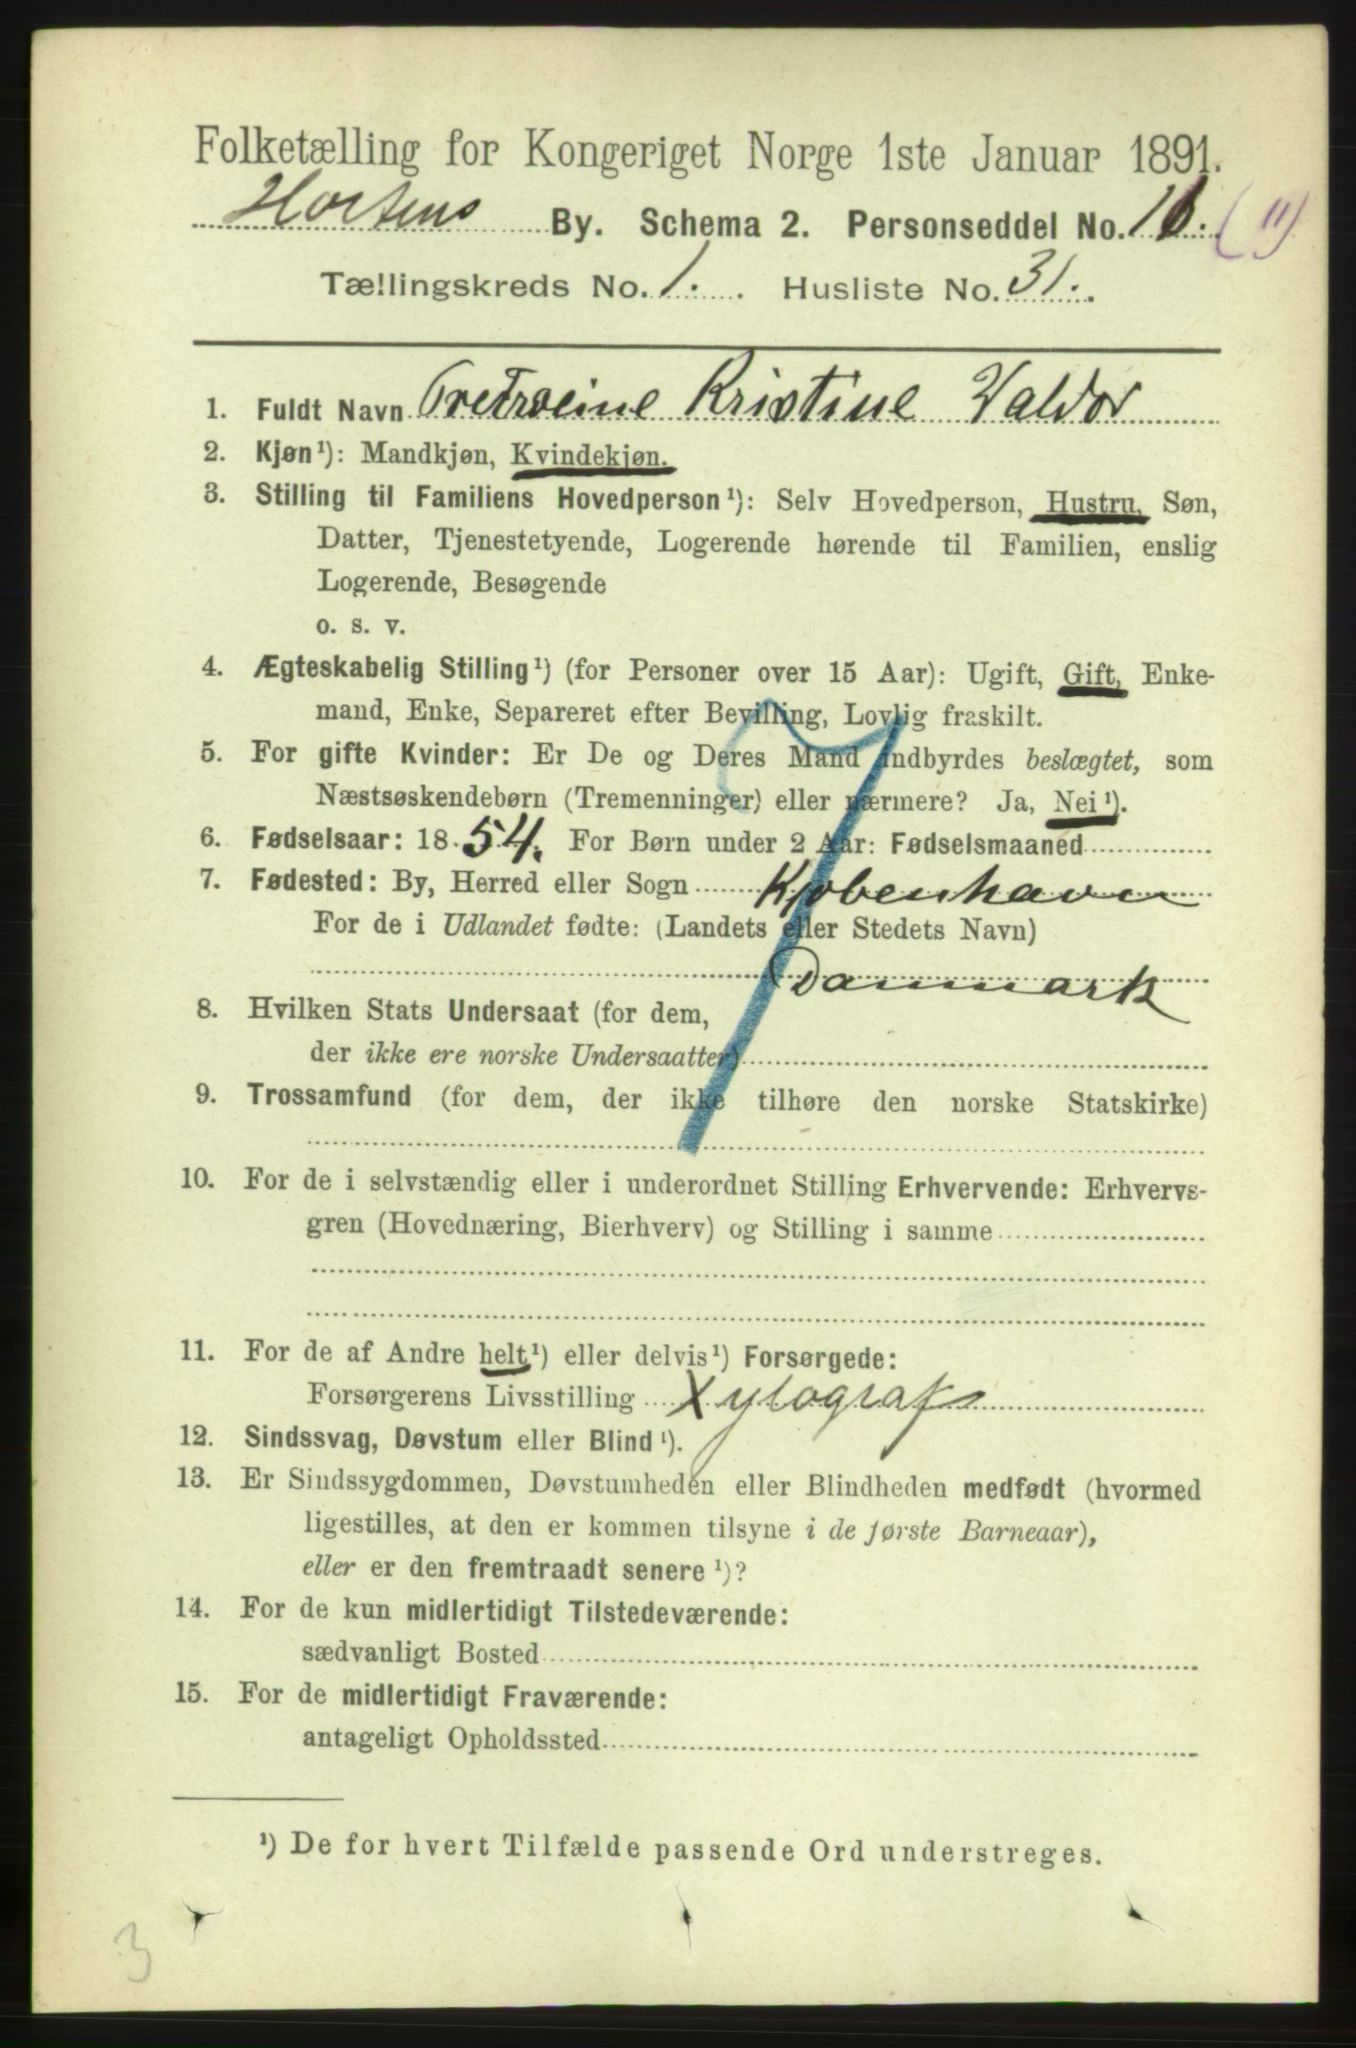 Folketælling for Kongeriget Norge 1ste Januar 1891.
Hortens By. Schema 2. Personseddel No. (11)
Tællingskreds No. 1. Husliste No. 31.
1. Fuldt Navn Kristine Valdor
2. Kjøn¹): Mandkjøn, Kvindekjøn.
3. Stilling til Familiens Hovedperson¹): Selv Hovedperson, Hustru, Søn,
Datter, Tjenestetyende, Logerende hørende til Familien, enslig
Logerende, Besøgende
o. s. v.
4. Ægteskabelig Stilling¹) (for Personer over 15 Aar): Ugift, Gift, Enke-
mand, Enke, Separeret efter Bevilling, Lovlig fraskilt.
5. For gifte Kvinder: Er De og Deres Mand indbyrdes beslægtet, som
Næstsøskendebørn (Tremenninger) eller nærmere? Ja, Nei¹).
6. Fødselsaar: 1854. For Børn under 2 Aar: Fødselsmaaned
7. Fødested: By, Herred eller Sogn Kjøbenhavn
For de i Udlandet fødte: (Landets eller Stedets Navn)
Danmark
8. Hvilken Stats Undersaat (for dem,
der ikke ere norske Undersaatter)
9. Trossamfund (for dem, der ikke tilhøre den norske Statskirke)
10. For de i selvstændig eller i underordnet Stilling Erhvervende: Erhvervs-
gren (Hovednæring, Bierhverv) og Stilling i samme
11. For de af Andre helt¹) eller delvis¹) Forsørgede:
Forsørgerens Livsstilling Xylograf
12. Sindssvag, Døvstum eller Blind¹).
13. Er Sindssygdommen, Døvstumheden eller Blindheden medfødt (hvormed
ligestilles, at den er kommen tilsyne i de første Barneaar),
eller er den fremtraadt senere¹)?
14. For de kun midlertidigt Tilstedeværende:
sædvanligt Bosted
15. For de midlertidigt Fraværende:
antageligt Opholdssted
¹) De for hvert Tilfælde passende Ord understreges.
3